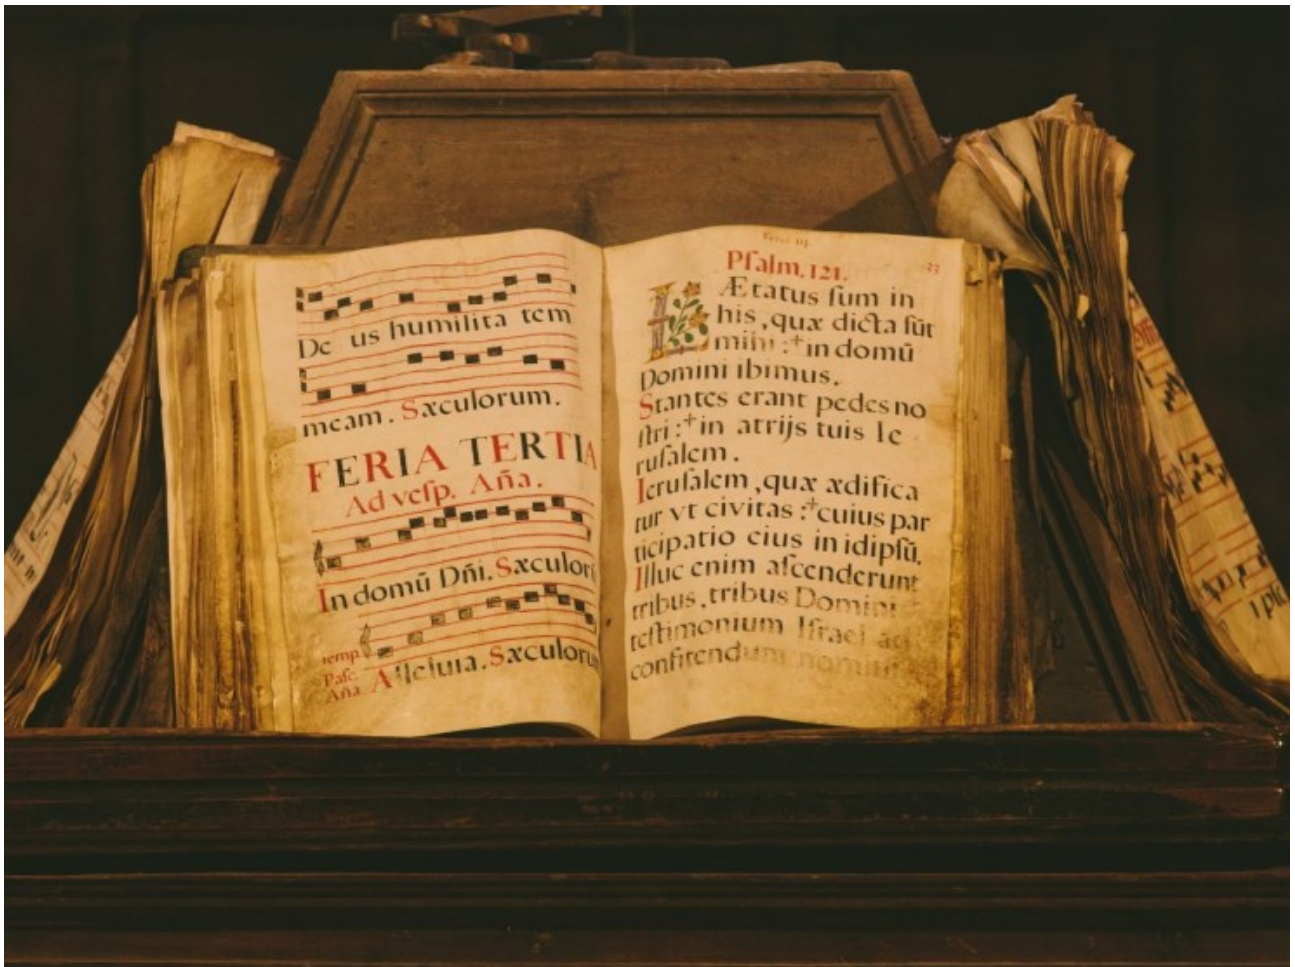 De us humilita tem
meam. Sæculorum.
FERIA TERTIA
Ad vesp. Aña.
In domū Dñi. Sæculor
temp.
Pasc.
Aña. Alleluia. Sæculoru
Feria iij.
Psalm. 121.
33
LÆtatus sum in
his, quæ dicta sūt
mihi :+ in domū
Domini ibimus.
Stantes erant pedes no
stri :+ in atrijs tuis Ie
rusalem.
Ierusalem, quæ ædifica
tur vt civitas :+ cuius par
ticipatio eius in idipsū.
Illuc enim ascenderunt
tribus, tribus Domini
testimonium Israel ad
confitendum nomini